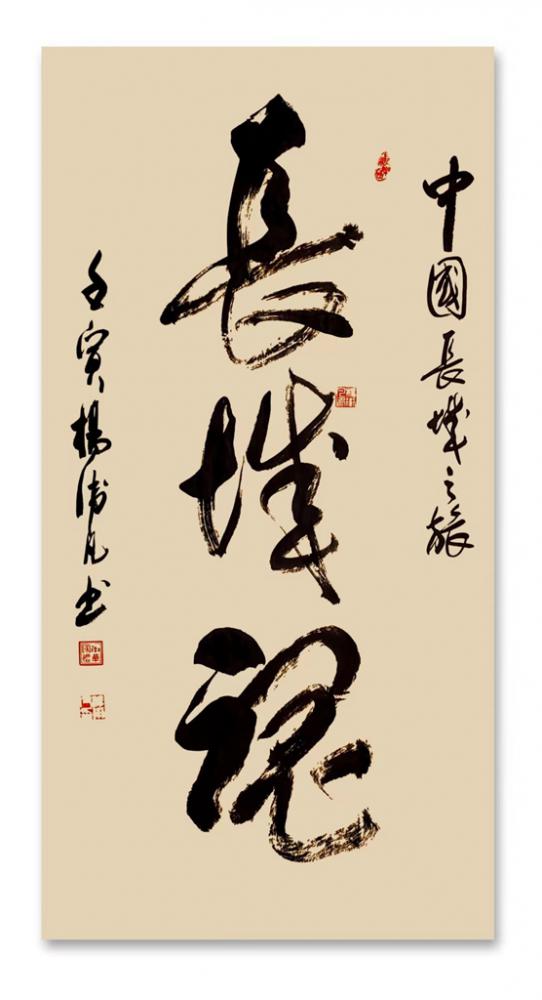 中國長城之旅
長城魂
壬寅楊清凡書